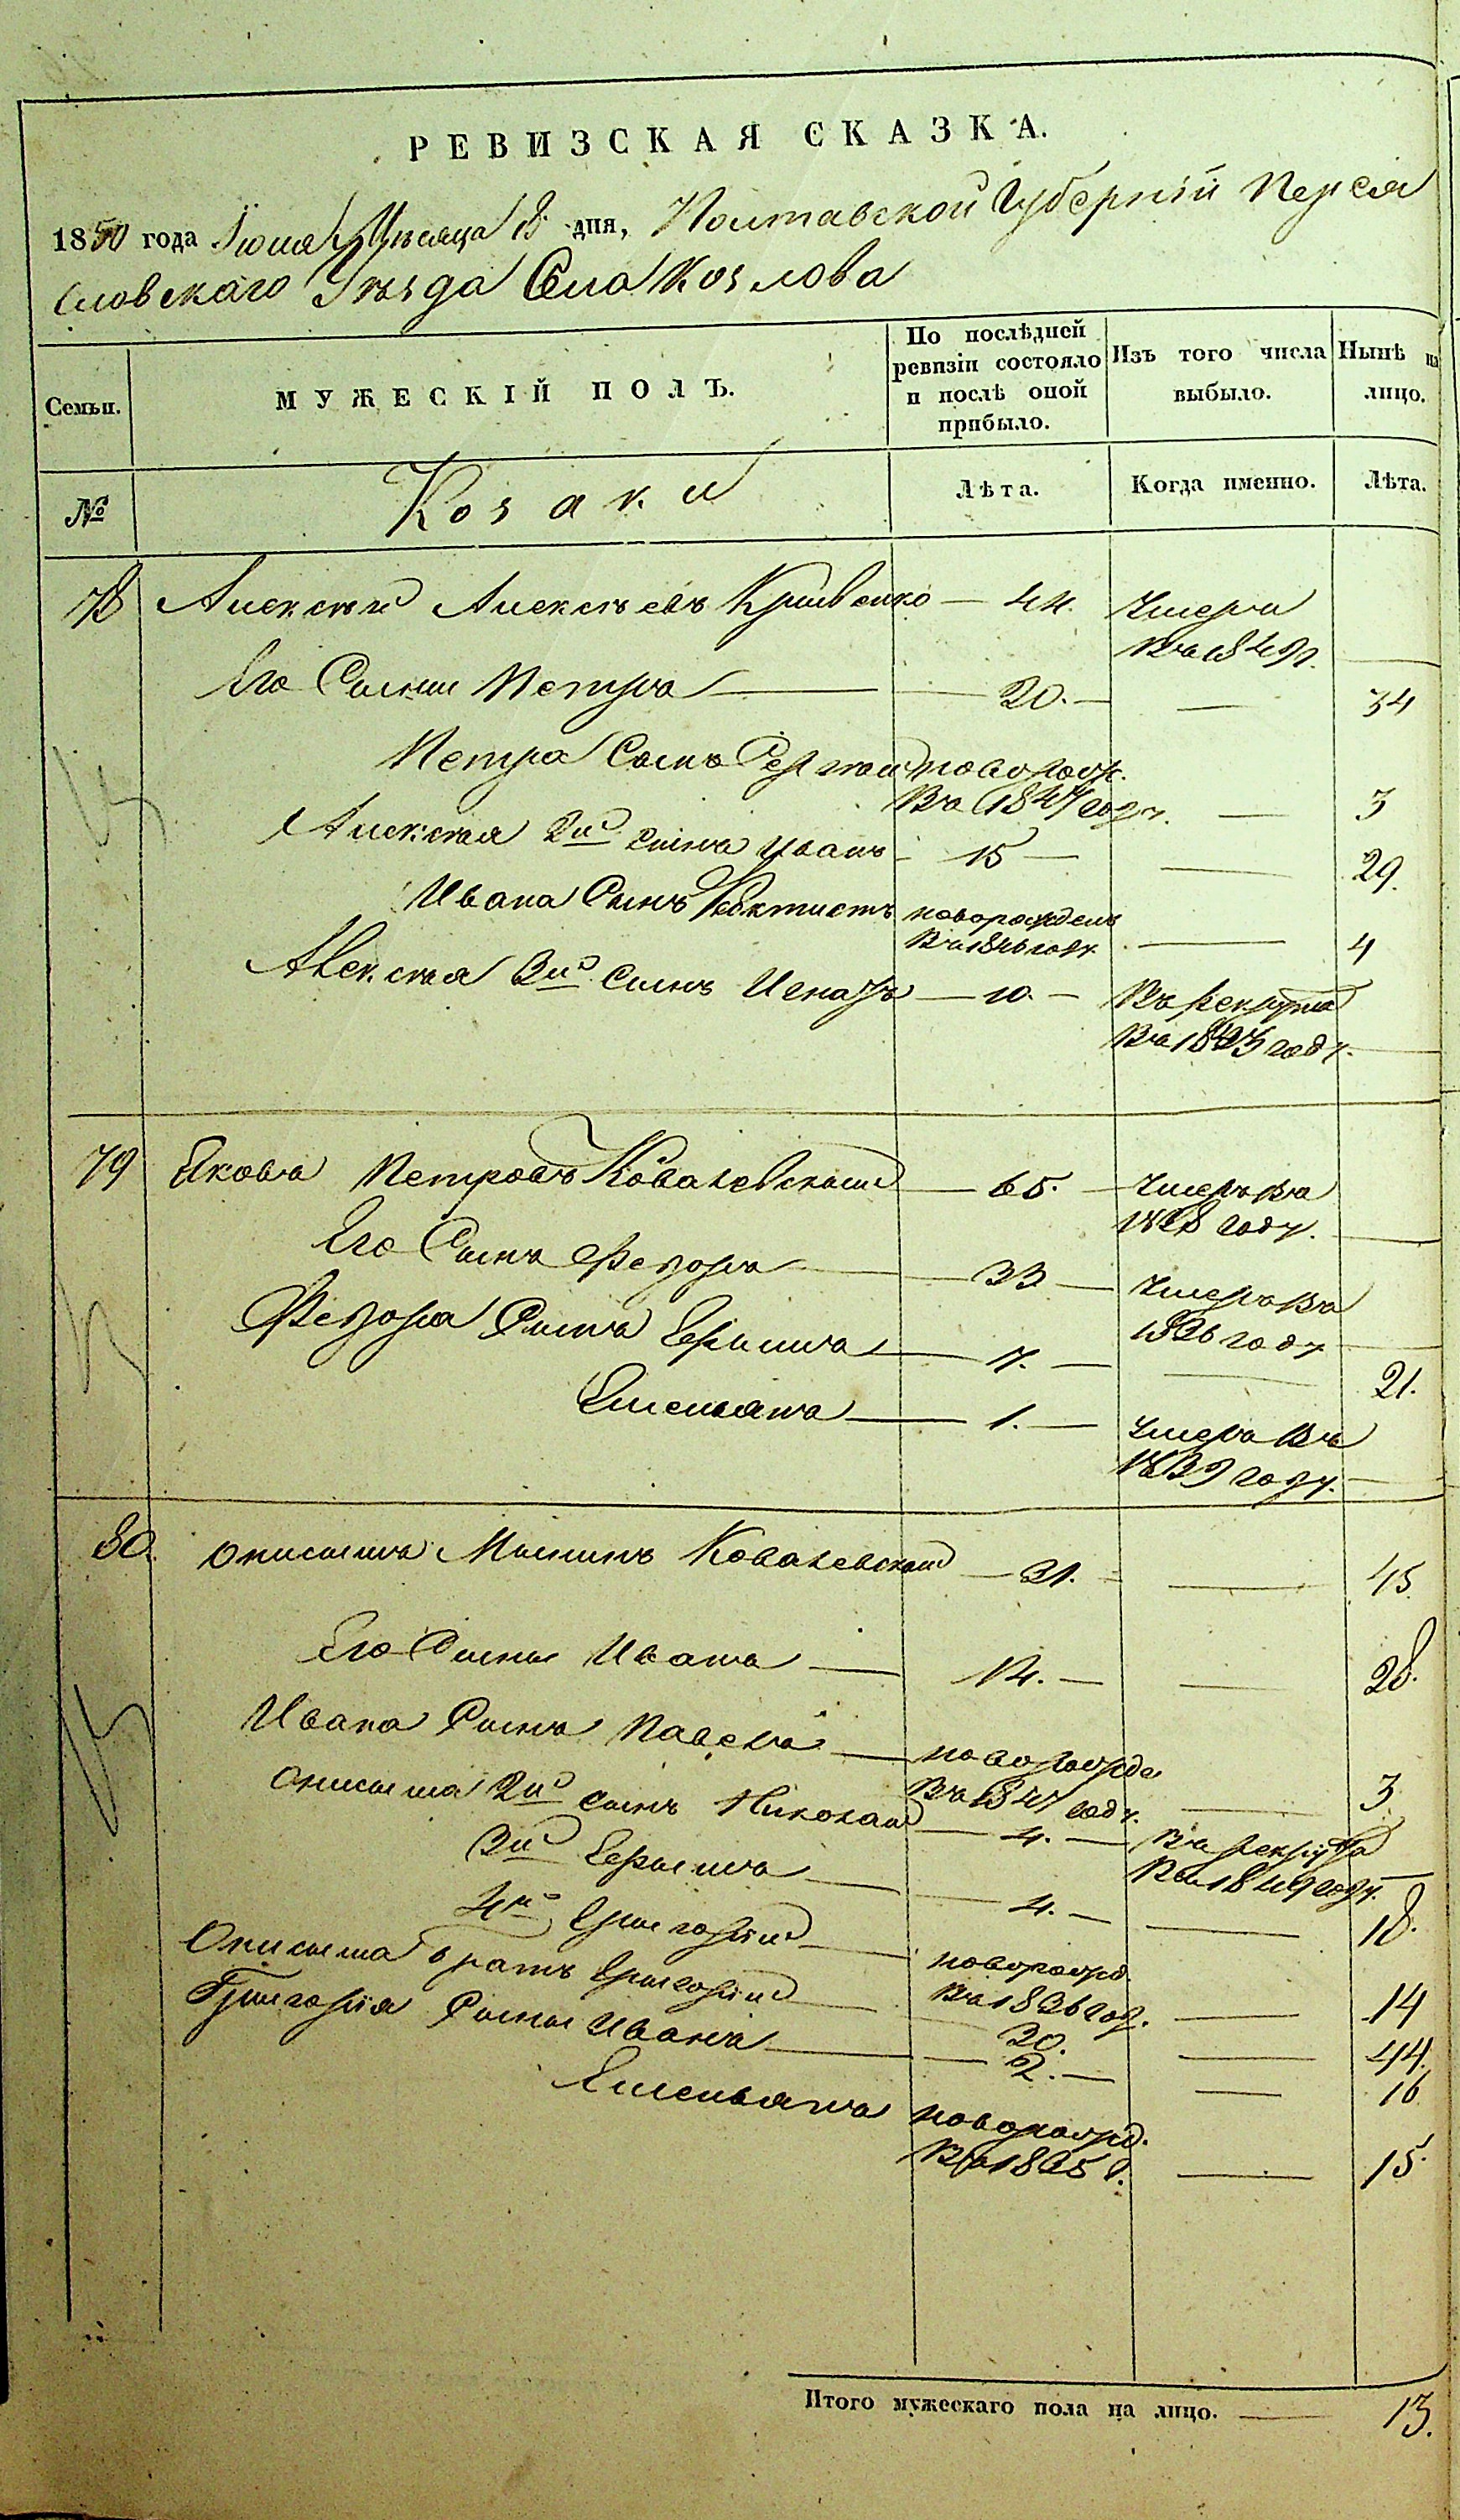 РЕВИЗСКАЯ СКАЗКА.
1850 года Іюня Мѣсяца 18 дня, Полтавской Губерніи Переяс
ловскаго Уѣзда Села Козлова
Семьи.
МУЖЕСКІЙ ПОЛЪ.
По послѣдней ревизіи состояло и послѣ оной прибыло.
Изъ того числа выбыло.
Нынѣ на лицо.
№
Козаки
Лѣта.
Когда именно.
Лѣта.
78 Алексѣй Алексѣевъ Кривенко — 44. Умеръ
въ 1849г. —
Его Сыны Петръ — 20. — — 34
Петра Сынъ Сергѣй новорожд.
въ 1847 году. — 3
Алексѣя 2й сынъ Иванъ — 15 — — 29.
Ивана Сынъ Феоктистъ новорожденъ
въ 1846 году. — 4
Алексѣя 3й Сынъ Игнатъ — 10. — въ рекруты
въ 1843 году. —
79 Яковъ Петровъ Ковалевскій — 65. — Умеръ въ
1838 году. —
Его Сынъ Федоръ — 33 — Умеръ въ
1836 году —
Федора Сынъ Герасимъ — 7. — — 21.
Емельянъ — 1. — Умеръ въ
1839 году. —
80. Онисимъ Мининъ Ковалевскій — 31. — — 45.
Его Сыны Иванъ — 14. — — 28.
Ивана Сынъ Павелъ — новорожде
въ 1847 году. — 3
Онисима 2й сынъ Николай — 4. — въ рекруты
въ 1849 году. —
3й Герасимъ — 4. — — 18.
4й Григорій — новорожд.
въ 1836 год. — 14
Онисима братъ Григорій — 30. — 44.
Григорія Сыны Иванъ — 2. — — 16
Емельянъ новорожд.
въ 1835 г. — 15.
Итого мужескаго пола на лицо. — 13.